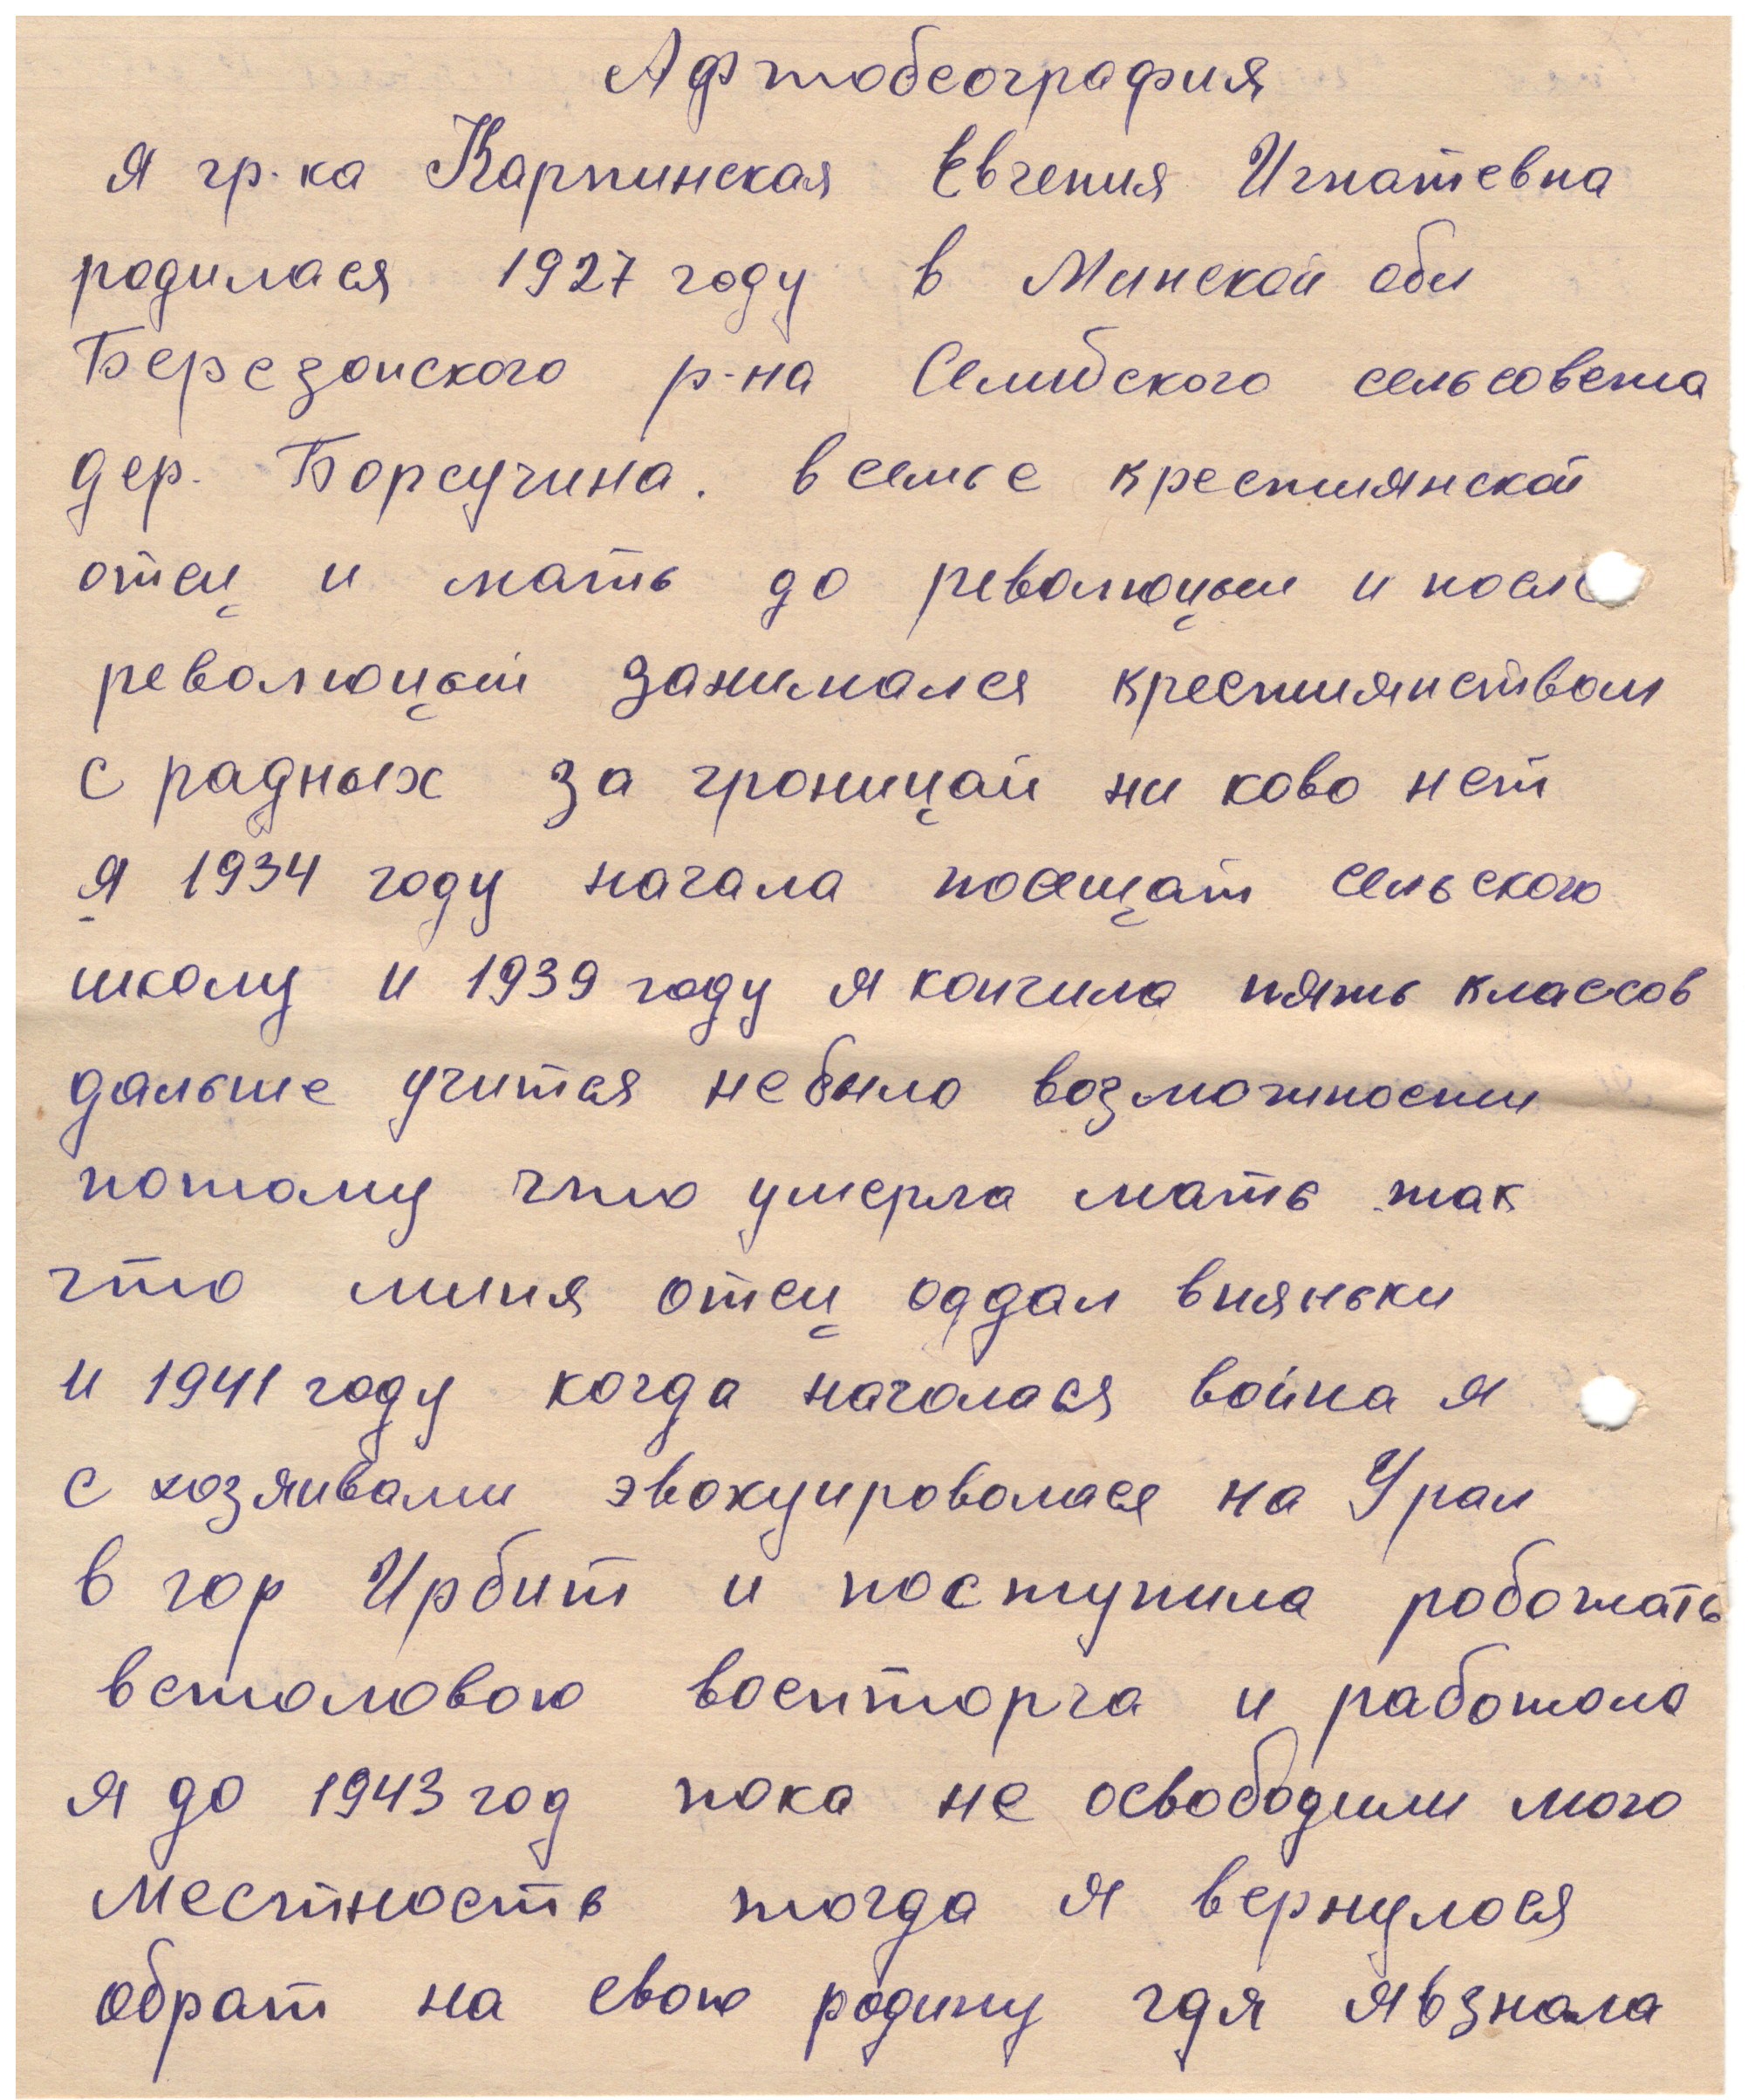 Афтобеография
я гр-ка Карпинская Евгения Игнатевна
родилася 1927 году в Минской обл
Березонского р-на Селибского сельсовета
дер. Борсучина. в семье крестиянской
отец и мать до революцыи и после
революцый занимался крестиянством
с радных за гроницай ни ково нет
я 1934 году начала посещат сельского
школу и 1939 году я кончила пять классов
дальше учится небыло возможности
потому что умерла мать так
что миня отец оддал вняньки
и 1941 году когда началася война я
с хозяивами эвокуировалася на Урал
в гор Ирбит и поступила роботать
встоловою воентторга и работала
я до 1943 год пока не освободили мого
местность тогда я вернулося
обрат на свою родину гдя явзнала